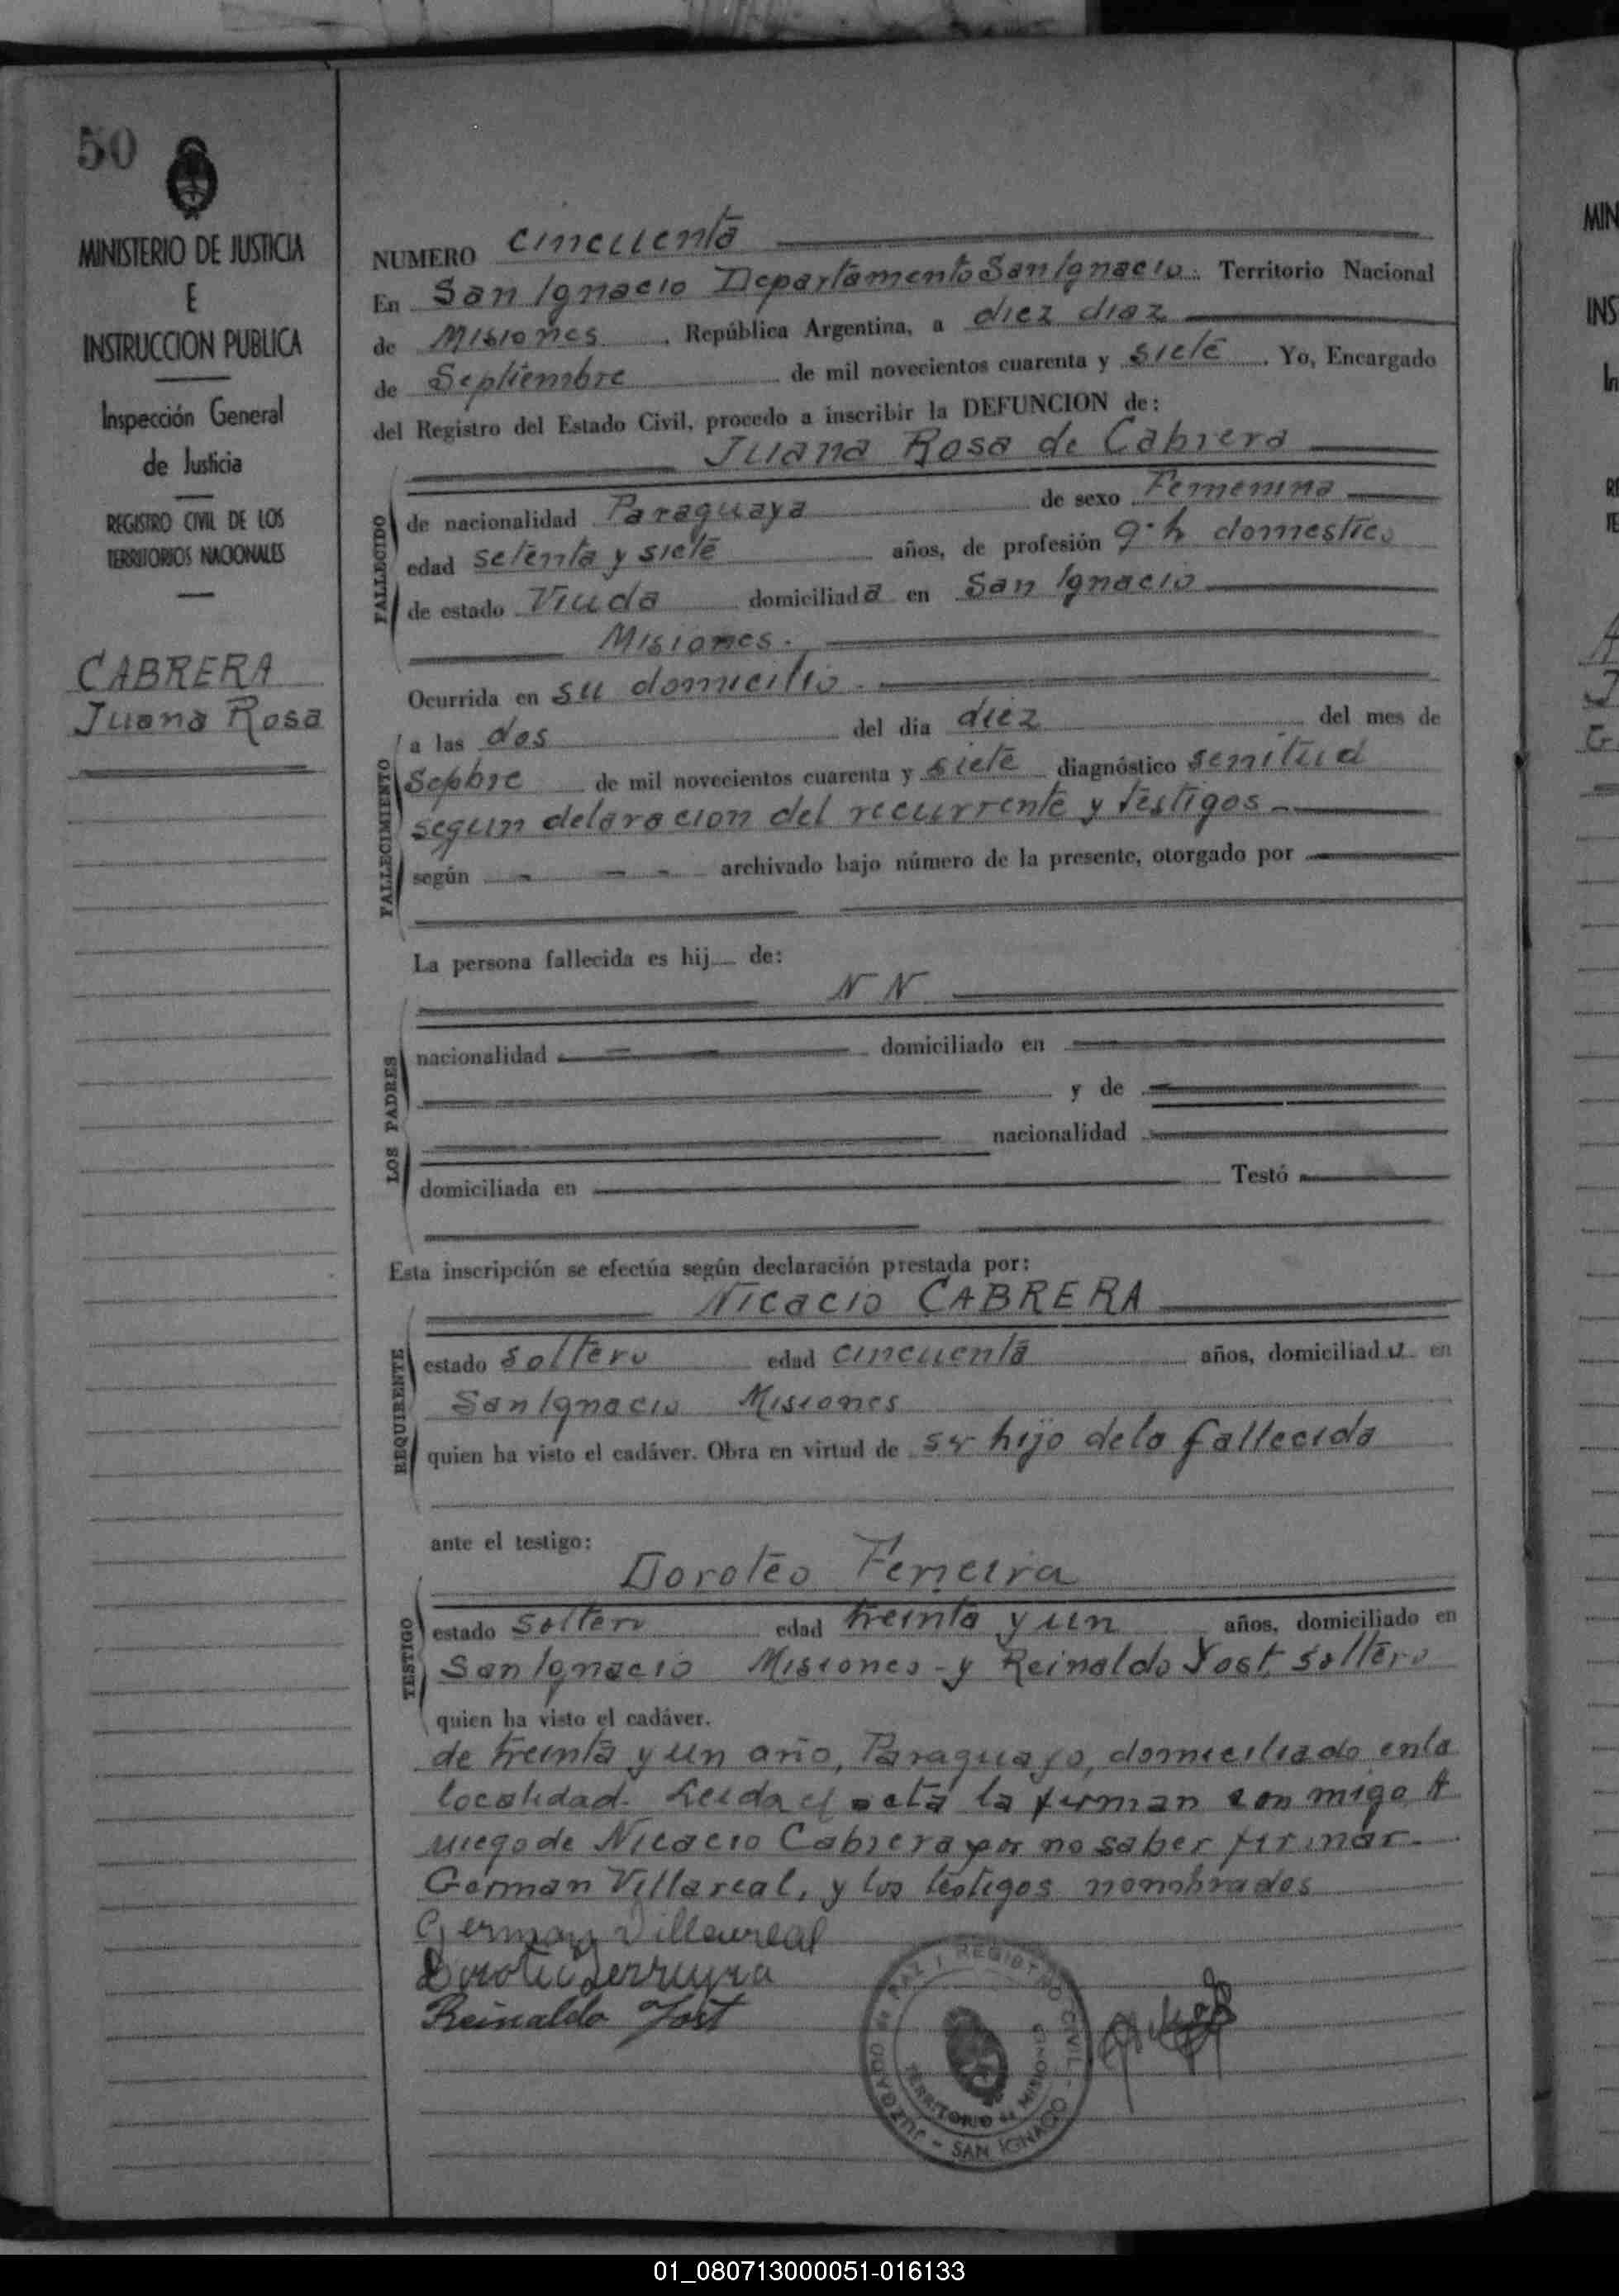 50
MINISTERIO DE JUSTICIA
E
INSTRUCCION PUBLICA
Inspección General
de Justicia
REGISTRO CIVIL DE LOS
TERRITORIOS NACIONALES
CABRERA
Juana Rosa
NUMERO cincuenta
En San Ignacio Departamento San Ignacio. Territorio Nacional
de Misiones, República Argentina, a diez diaz
de Septiembre de mil novecientos cuarenta y siete. Yo, Encargado
del Registro del Estado Civil, procedo a inscribir la DEFUNCION de:
Juana Rosa de Cabrera
FALLECIDO
de nacionalidad Paraguaya de sexo Femenina
edad setenta y siete años, de profesión q. h domestico
de estado Viuda domiciliada en San Ignacio
Misiones.
Ocurrida en su domicilio.
FALLECIMIENTO
a las dos del dia diez del mes de
Sepbre de mil novecientos cuarenta y siete diagnóstico senitud
segun delaracion del recurrente y testigos
según - - - archivado bajo número de la presente, otorgado por
La persona fallecida es hij de:
N N
LOS PADRES
nacionalidad domiciliado en
y de
nacionalidad
domiciliada en Testó
Esta inscripción se efectúa según declaración prestada por:
Nicacio CABRERA
REQUIRENTE
estado soltero edad cincuenta años, domiciliado en
San Ignacio Misiones
quien ha visto el cadáver. Obra en virtud de sr hijo dela fallecida
ante el testigo:
Doroteo Ferreira
TESTIGO
estado soltero edad treinta y un años, domiciliado en
San Ignacio Misiones - y Reinaldo Yost soltero
quien ha visto el cadáver.
de treinta y un año, Paraguayo, domiciliado en la
localidad. Leida el acta la firman con migo A
ruego de Nicacio Cabrera por no saber firmar.
German Villareal, y los testigos nombrados
German Villareal
Doroteo Ferreyra
Reinaldo Jost
JUZGADO de PAZ Y REGISTRO CIVIL - SAN IGNACIO -
TERRITORIO de MISIONES
MIN
INS
01_080713000051-016133